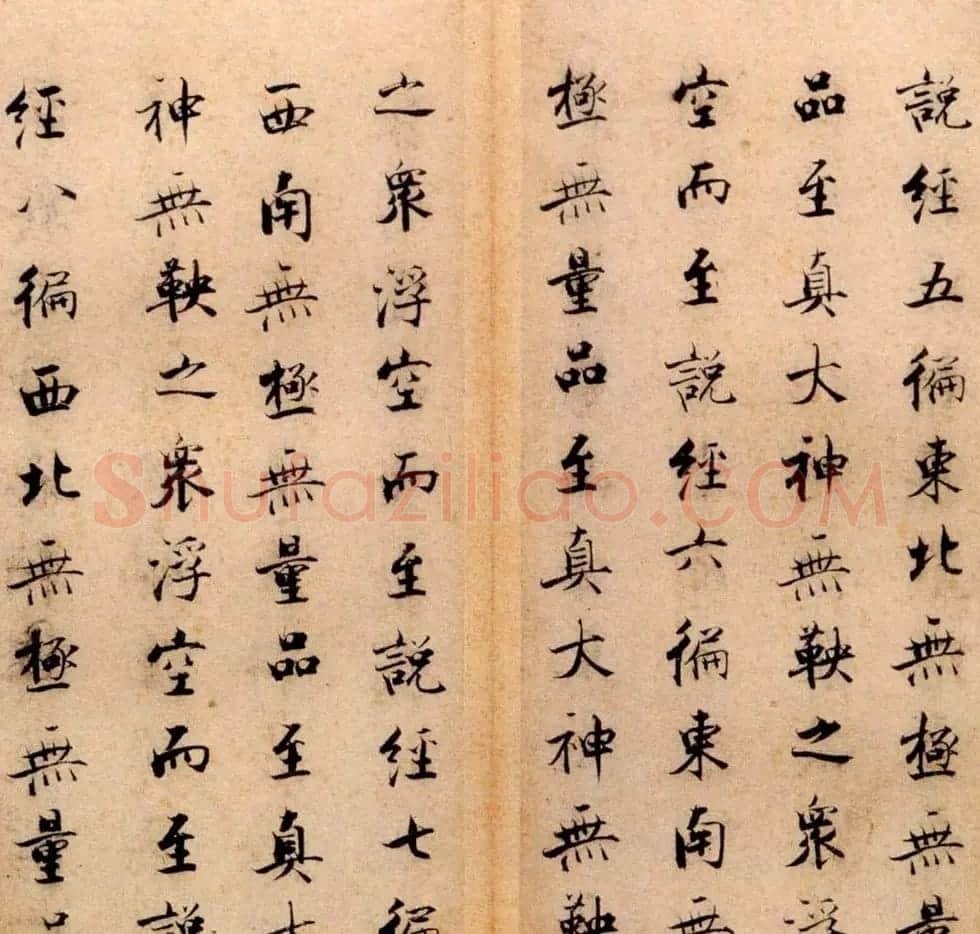 説經五徧東北無極無量
品至真大神無鞅之衆浮
空而至説經六徧東南無
極無量品至真大神無鞅
之衆浮空而至説經七徧
西南無極無量品至真大
神無鞅之衆浮空而至説
經八徧西北無極無量品
Shufaziliao.COM